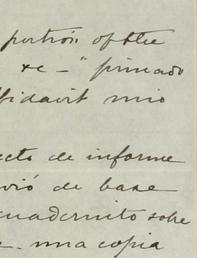 portión of the
&c - "primado
fidavit mio
ecto de informe
vió de base
cuadernito sobre
una copia